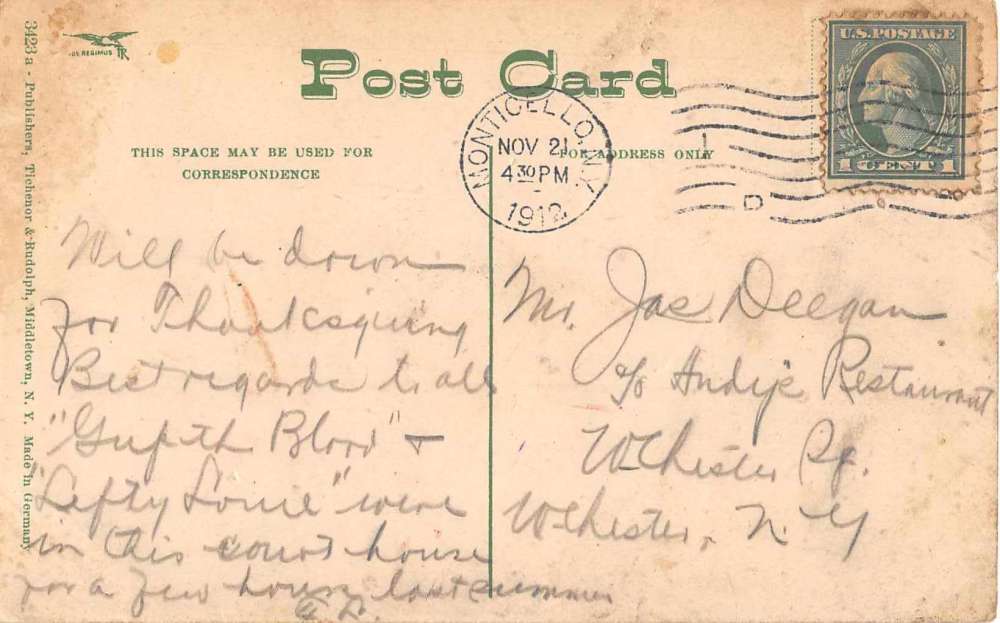 3423 a - Publishers, Tichenor & Rudolph, Middletown, N. Y. Made in Germany
TR
Post Card
THIS SPACE MAY BE USED FOR
CORRESPONDENCE
FOR ADDRESS ONLY
MONTICELLO, N.Y.
NOV 21
4 30 PM
1912
1
D
U.S. POSTAGE
1 CENT 1
Will be down
for Thanksgiving
Best regards to all
"Gyp the Blood" &
"Lefty Louie" were
in this court house
for a few hours last summer
Mr. Jas Deegan
c/o Andy's Restaurant
WChester Sq.
WChester, N. Y